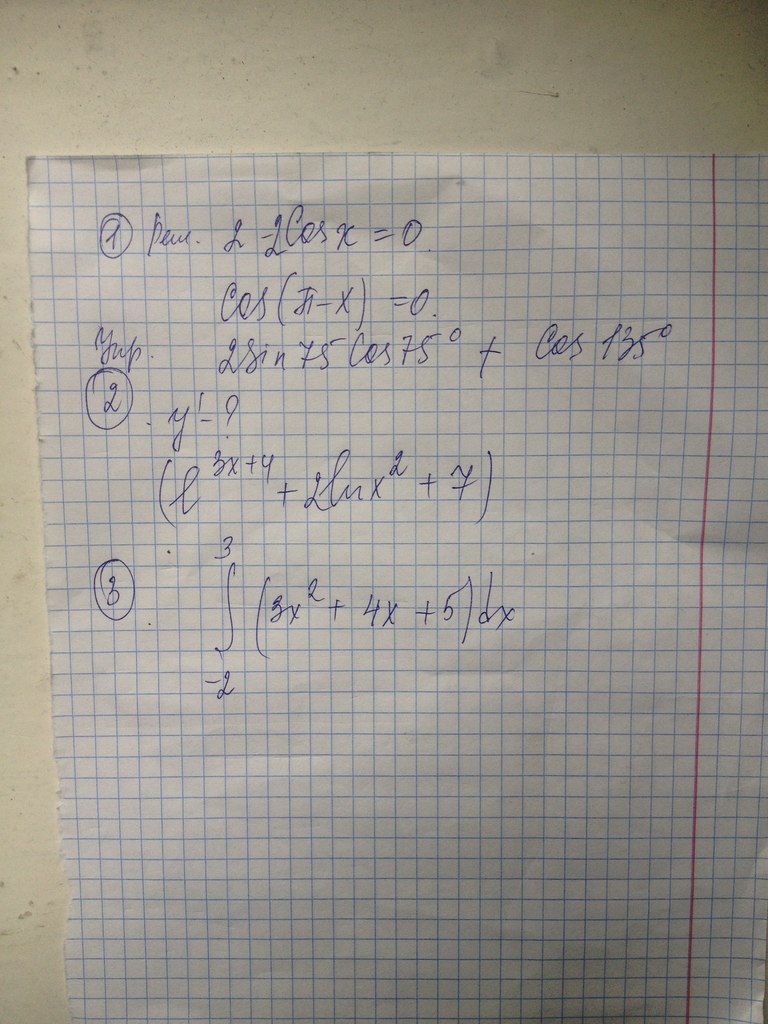 ① Реш. 2 - 2Cos x = 0.
Cos(π - x) = 0.
Упр. 2Sin 75 Cos 75° + Cos 135°
② y' - ?
(e^{3x+4} + 2ln x² + 7)
③ ∫_{-2}^{3} (3x² + 4x + 5) dx